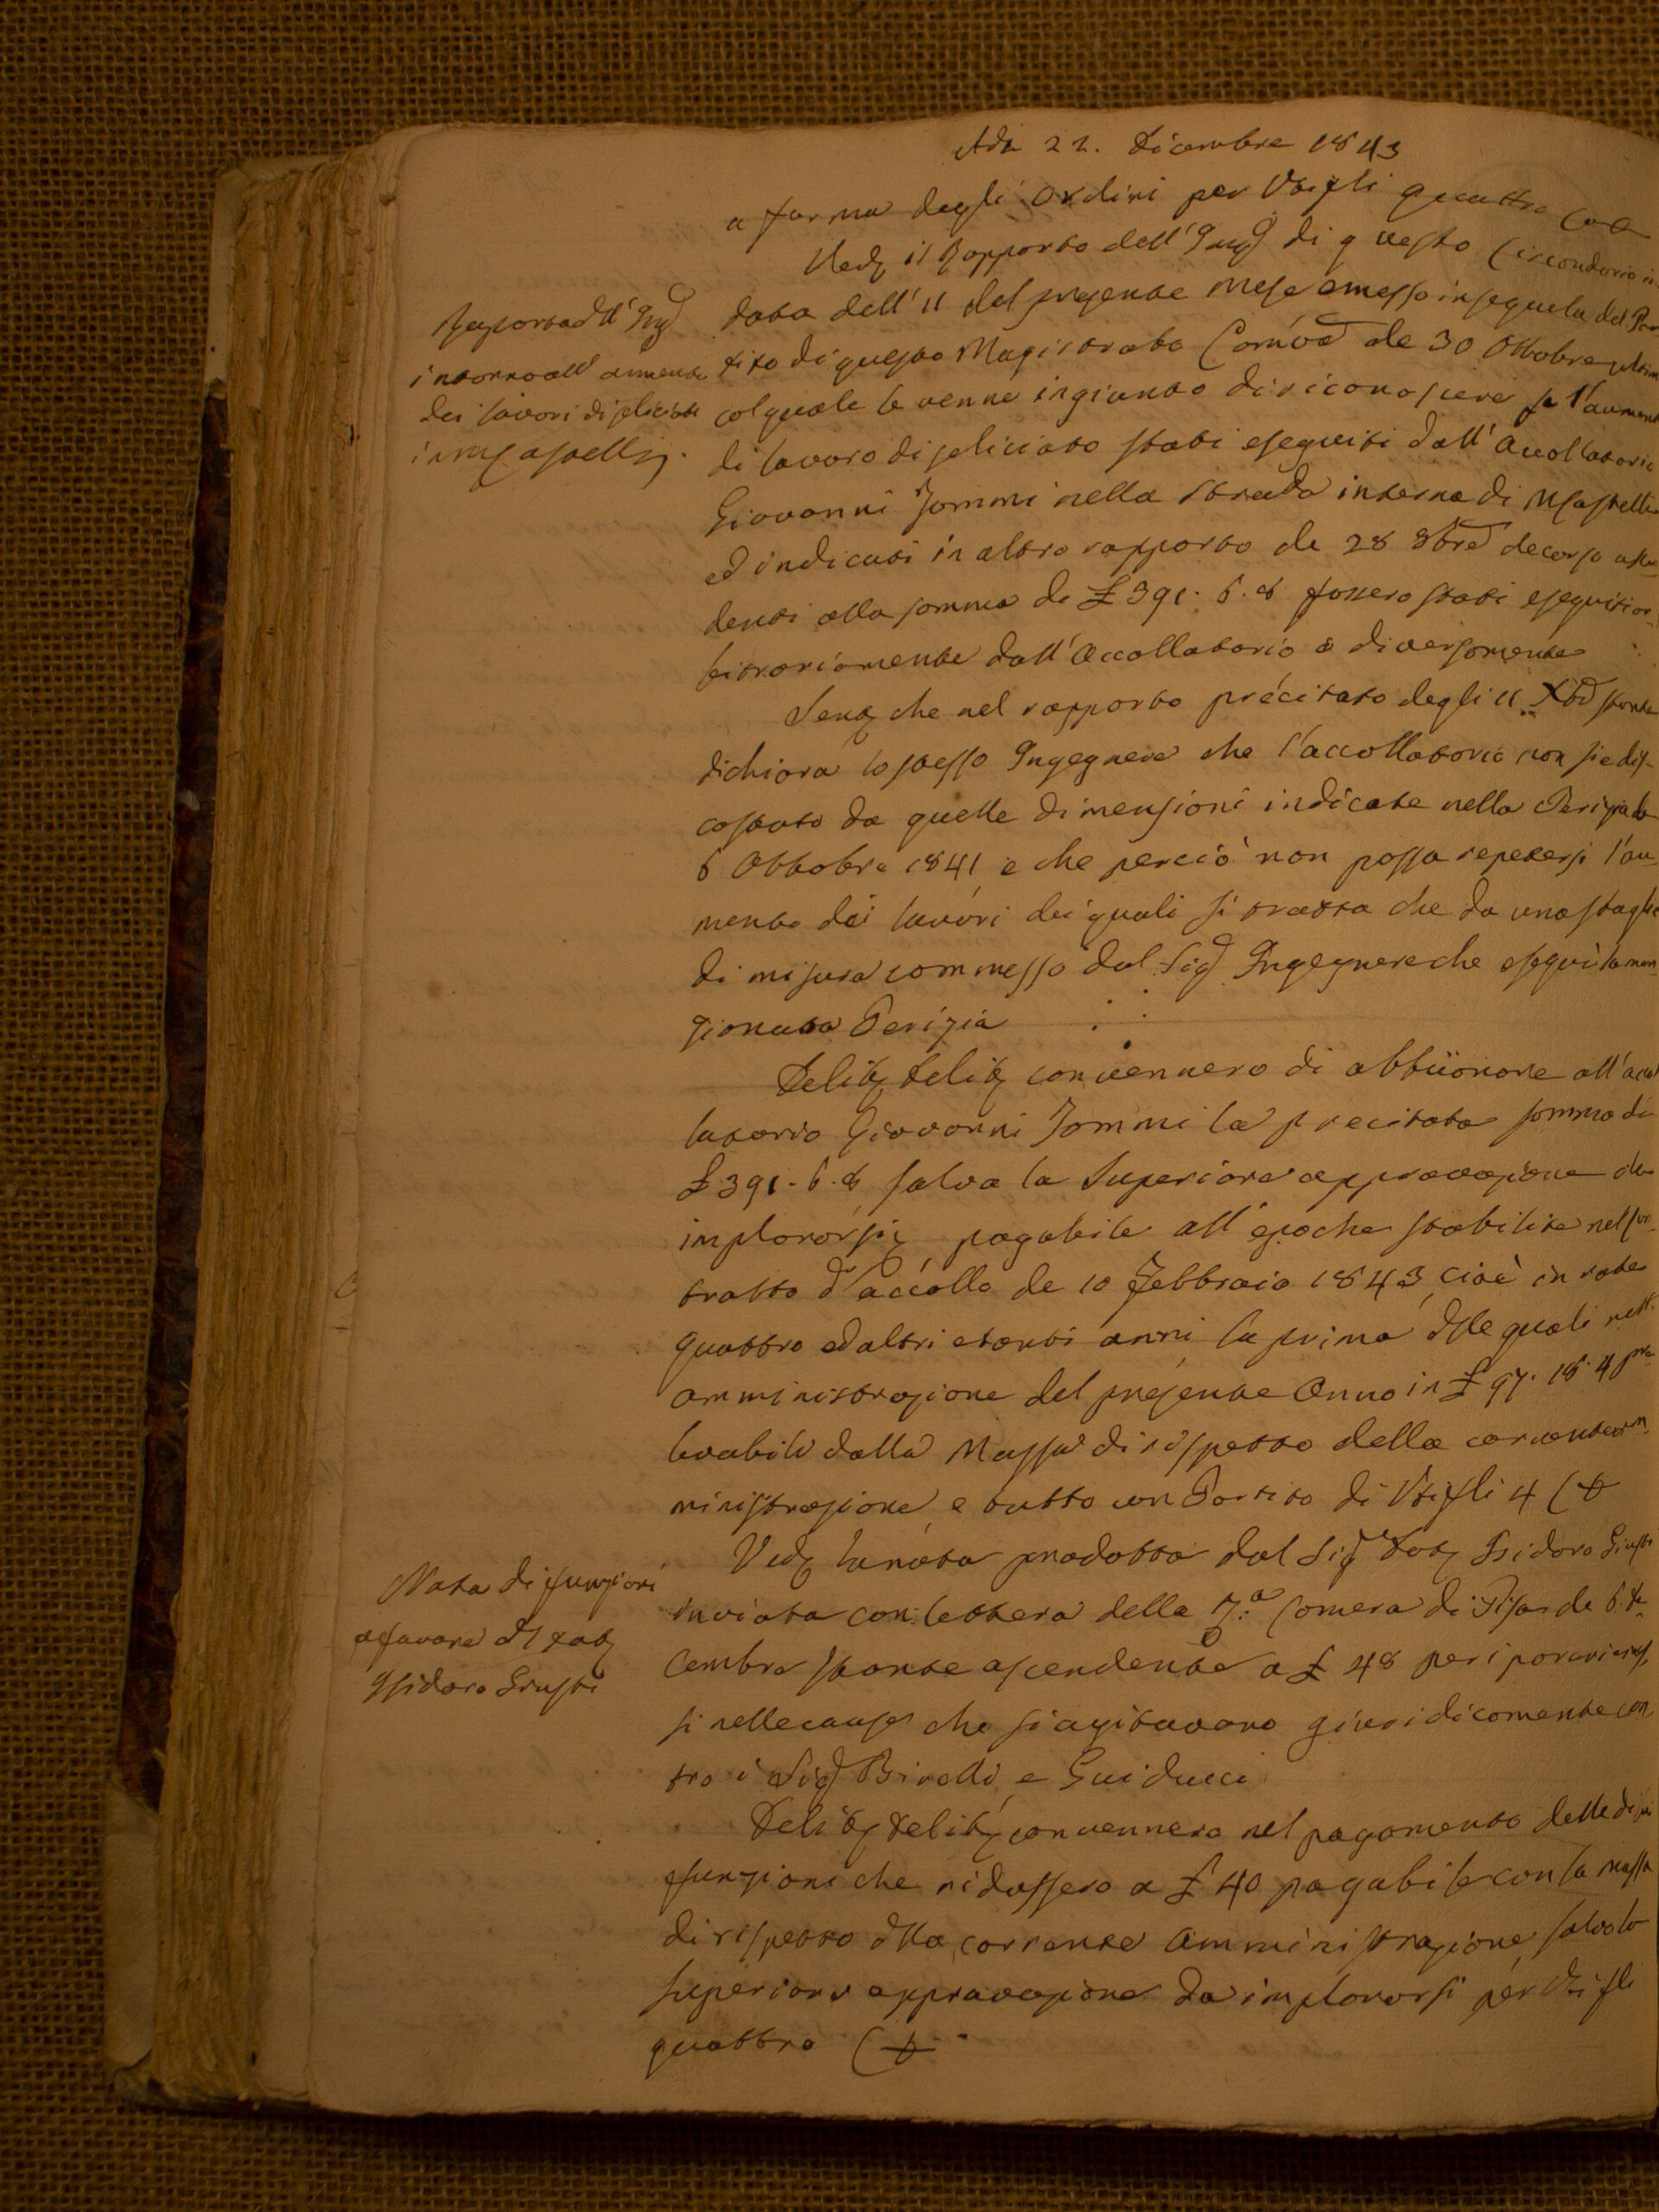 Adì 22. Dicembre 1843
a forma degli Ordini per Voti fli quattro
Ved. il Rapporto dell'Ing. di questo Circondario in
Rapporto dll' Ing.
intorno all' aumento
dei lavori di seliciato
in Mcastelli.
data dell' 11 del presente mese emesso in sequela del Par
tito di questo Magistrato Comvo de 30 Ottobre ultim
col quale le venne ingiunto di riconoscere se l'aumento
di lavoro di seliciato stati eseguiti dall' Accollatario
Giovanni Jommi nella strada interna di MCastelli
ed indicati in altro rapporto de 28 8bre decorso ascen
denti alla somma di £ 391. 6. 8 fossero stati eseguiti ar
bitrariamente dall' Accollatario o diversamente
Sent. che nel rapporto precitato degli 11 Xbre stante
dichiara lo stesso Ingegnere che l'accollatario non si è dis-
costato da quelle dimensioni indicate nella Perizia de
6 Ottobre 1841, e che perciò non possa repetersi l'au
mento dei lavori dei quali si tratta che da uno sbaglio
di misura commesso dal Sig. Ingegnere che eseguì la men
zionata Perizia
Delib. Delib. convennero di abbuonare all' accol
latario Giovanni Jommi la precitata somma di
£ 391. 6. 8 salva la Superiore approvazione da
implorarsi, pagabile all' epoche stabilite nel con
tratto d'accollo de 10 Febbraio 1843, cioè in rate
quattro ed altri etanti anni la prima dlle quali nell'
amministrazione del presente Anno in £ 97. 16. 4 pre
levabile dalla Massa di rispetto della corrente am
ministrazione, e tutto con Partito di Voti fli 4 (+
Nota di funzioni
a favore dl Dot.
Isidoro Giusti
Ved. la nota prodotta dal Sig. Dot. Isidoro Giusti
inviata con lettera della Camera di Pisa de 6. De
cembre stante ascendente a £ 48 per i
si nelle cause che si agitavano giuridicamente con
tro i Sig. Birelli, e Guiducci
Delib. Delib. convennero nel pagamento delle di lui
funzioni che ridussero a £ 40 pagabile con la massa
di rispetto dlla corrente Amministrazione salvo la
superiore approvazione da implorarsi per Voti fli
quattro (+